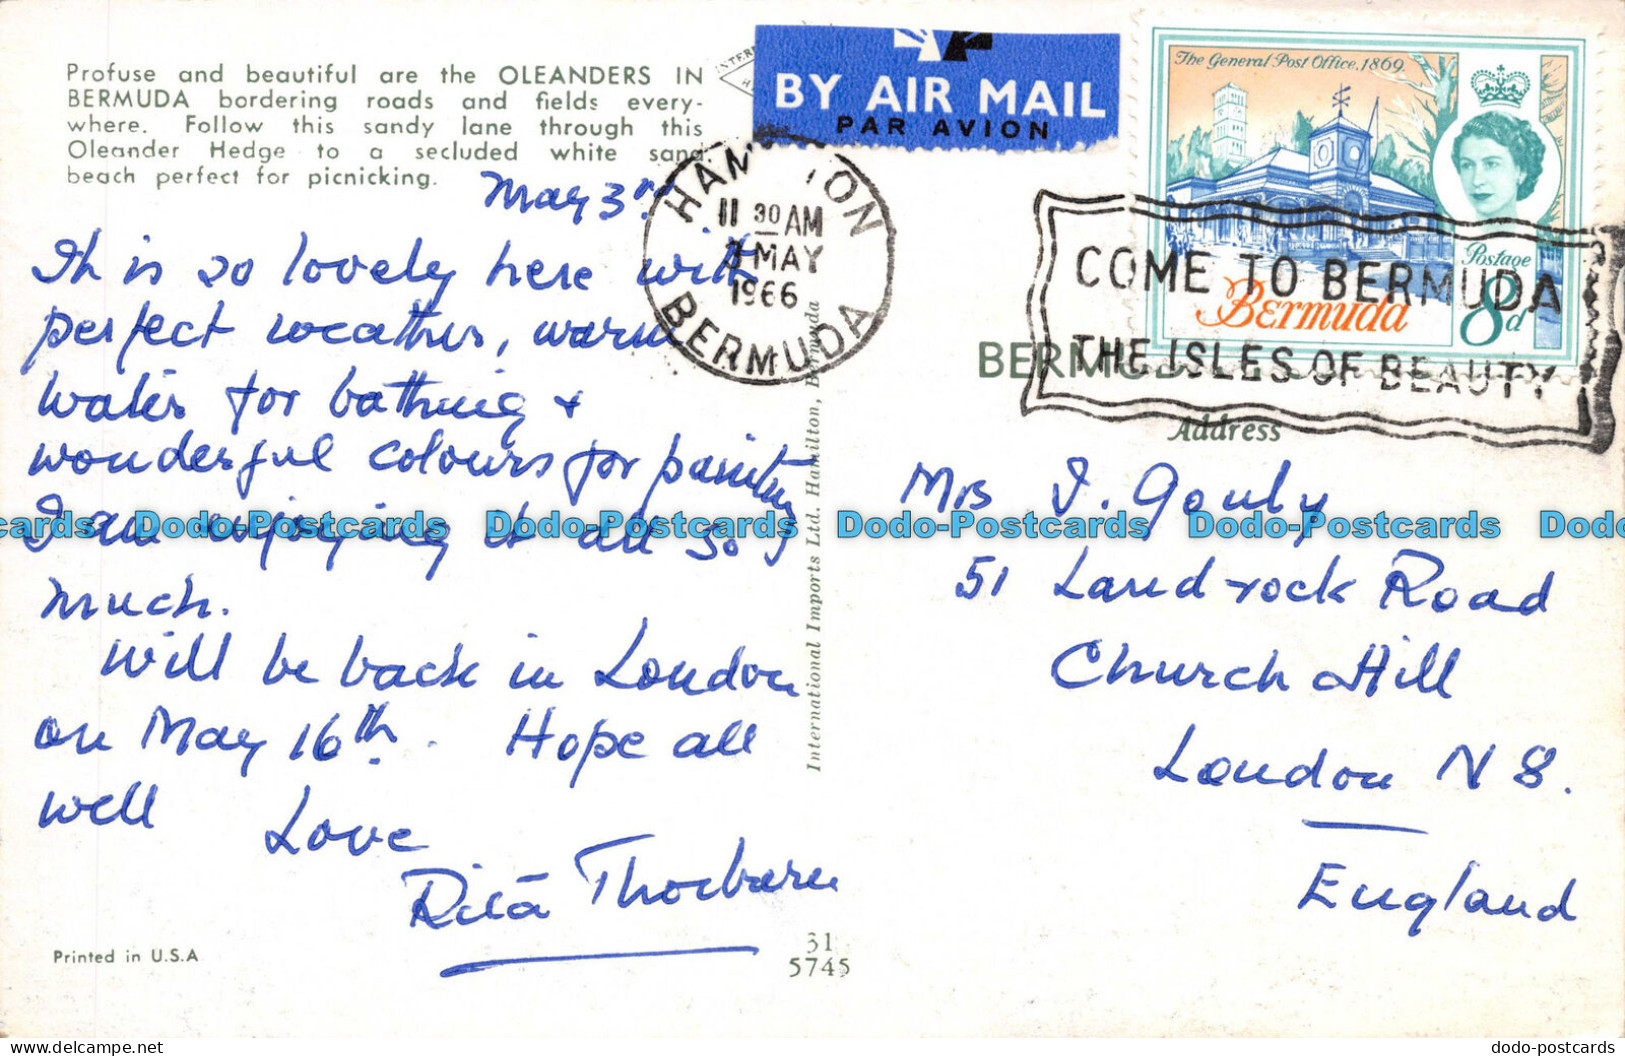 Profuse and beautiful are the OLEANDERS IN
BERMUDA bordering roads and fields every-
where. Follow this sandy lane through this
Oleander Hedge to a secluded white sand
beach perfect for picnicking.
May 3rd.
It is so lovely here with
perfect weather, warm
water for bathing &
wonderful colours for painting
I am enjoying it all so
much.
Will be back in London
on May 16th. Hope all
well
Love
Rita Thorburn
Printed in U.S.A
International Imports Ltd. Hamilton, Bermuda
31
5745
BY AIR MAIL
PAR AVION
HAMILTON
11 30 AM
3 MAY
1966
BERMUDA
The General Post Office, 1869.
Postage
Bermuda
8d
COME TO BERMUDA
THE ISLES OF BEAUTY
Address
Mrs I. Gouly
51 Landrock Road
Church Hill
London N 8.
England
Dodo-Postcards Dodo-Postcards Dodo-Postcards Dodo-Postcards
dodo-postcards.com